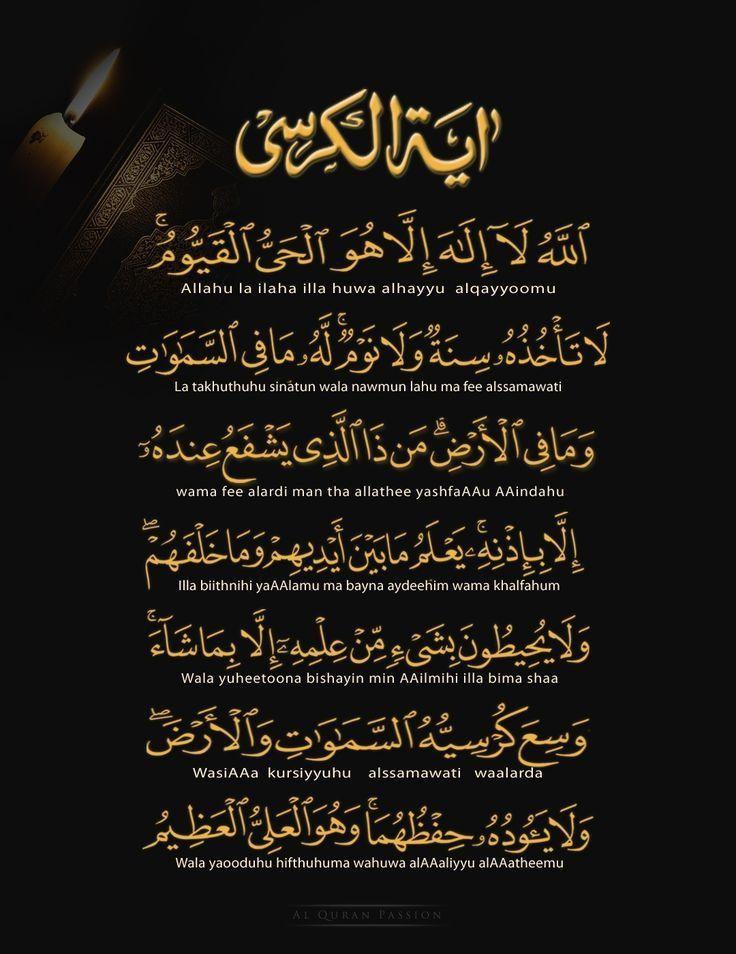 اية الكرسي
ٱللَّهُ لَآ إِلَٰهَ إِلَّا هُوَ ٱلْحَىُّ ٱلْقَيُّومُ ۚ
Allahu la ilaha illa huwa alhayyu alqayyoomu
لَا تَأْخُذُهُۥ سِنَةٌ وَلَا نَوْمٌ ۚ لَّهُۥ مَا فِى ٱلسَّمَٰوَٰتِ
La takhuthuhu sinatun wala nawmun lahu ma fee alssamawati
وَمَا فِى ٱلْأَرْضِ ۗ مَن ذَا ٱلَّذِى يَشْفَعُ عِندَهُۥٓ
wama fee alardi man tha allathee yashfaAAu AAindahu
إِلَّا بِإِذْنِهِۦ ۚ يَعْلَمُ مَا بَيْنَ أَيْدِيهِمْ وَمَا خَلْفَهُمْ ۖ
Illa biithnihi yaAAlamu ma bayna aydeehim wama khalfahum
وَلَا يُحِيطُونَ بِشَىْءٍ مِّنْ عِلْمِهِۦٓ إِلَّا بِمَا شَآءَ ۚ
Wala yuheetoona bishayin min AAilmihi illa bima shaa
وَسِعَ كُرْسِيُّهُ ٱلسَّمَٰوَٰتِ وَٱلْأَرْضَ ۖ
WasiAAa kursiyyuhu alssamawati waalarda
وَلَا يَـُٔودُهُۥ حِفْظُهُمَا ۚ وَهُوَ ٱلْعَلِىُّ ٱلْعَظِيمُ
Wala yaooduhu hifthuhuma wahuwa alAAaliyyu alAAatheemu
AL QURAN PASSION